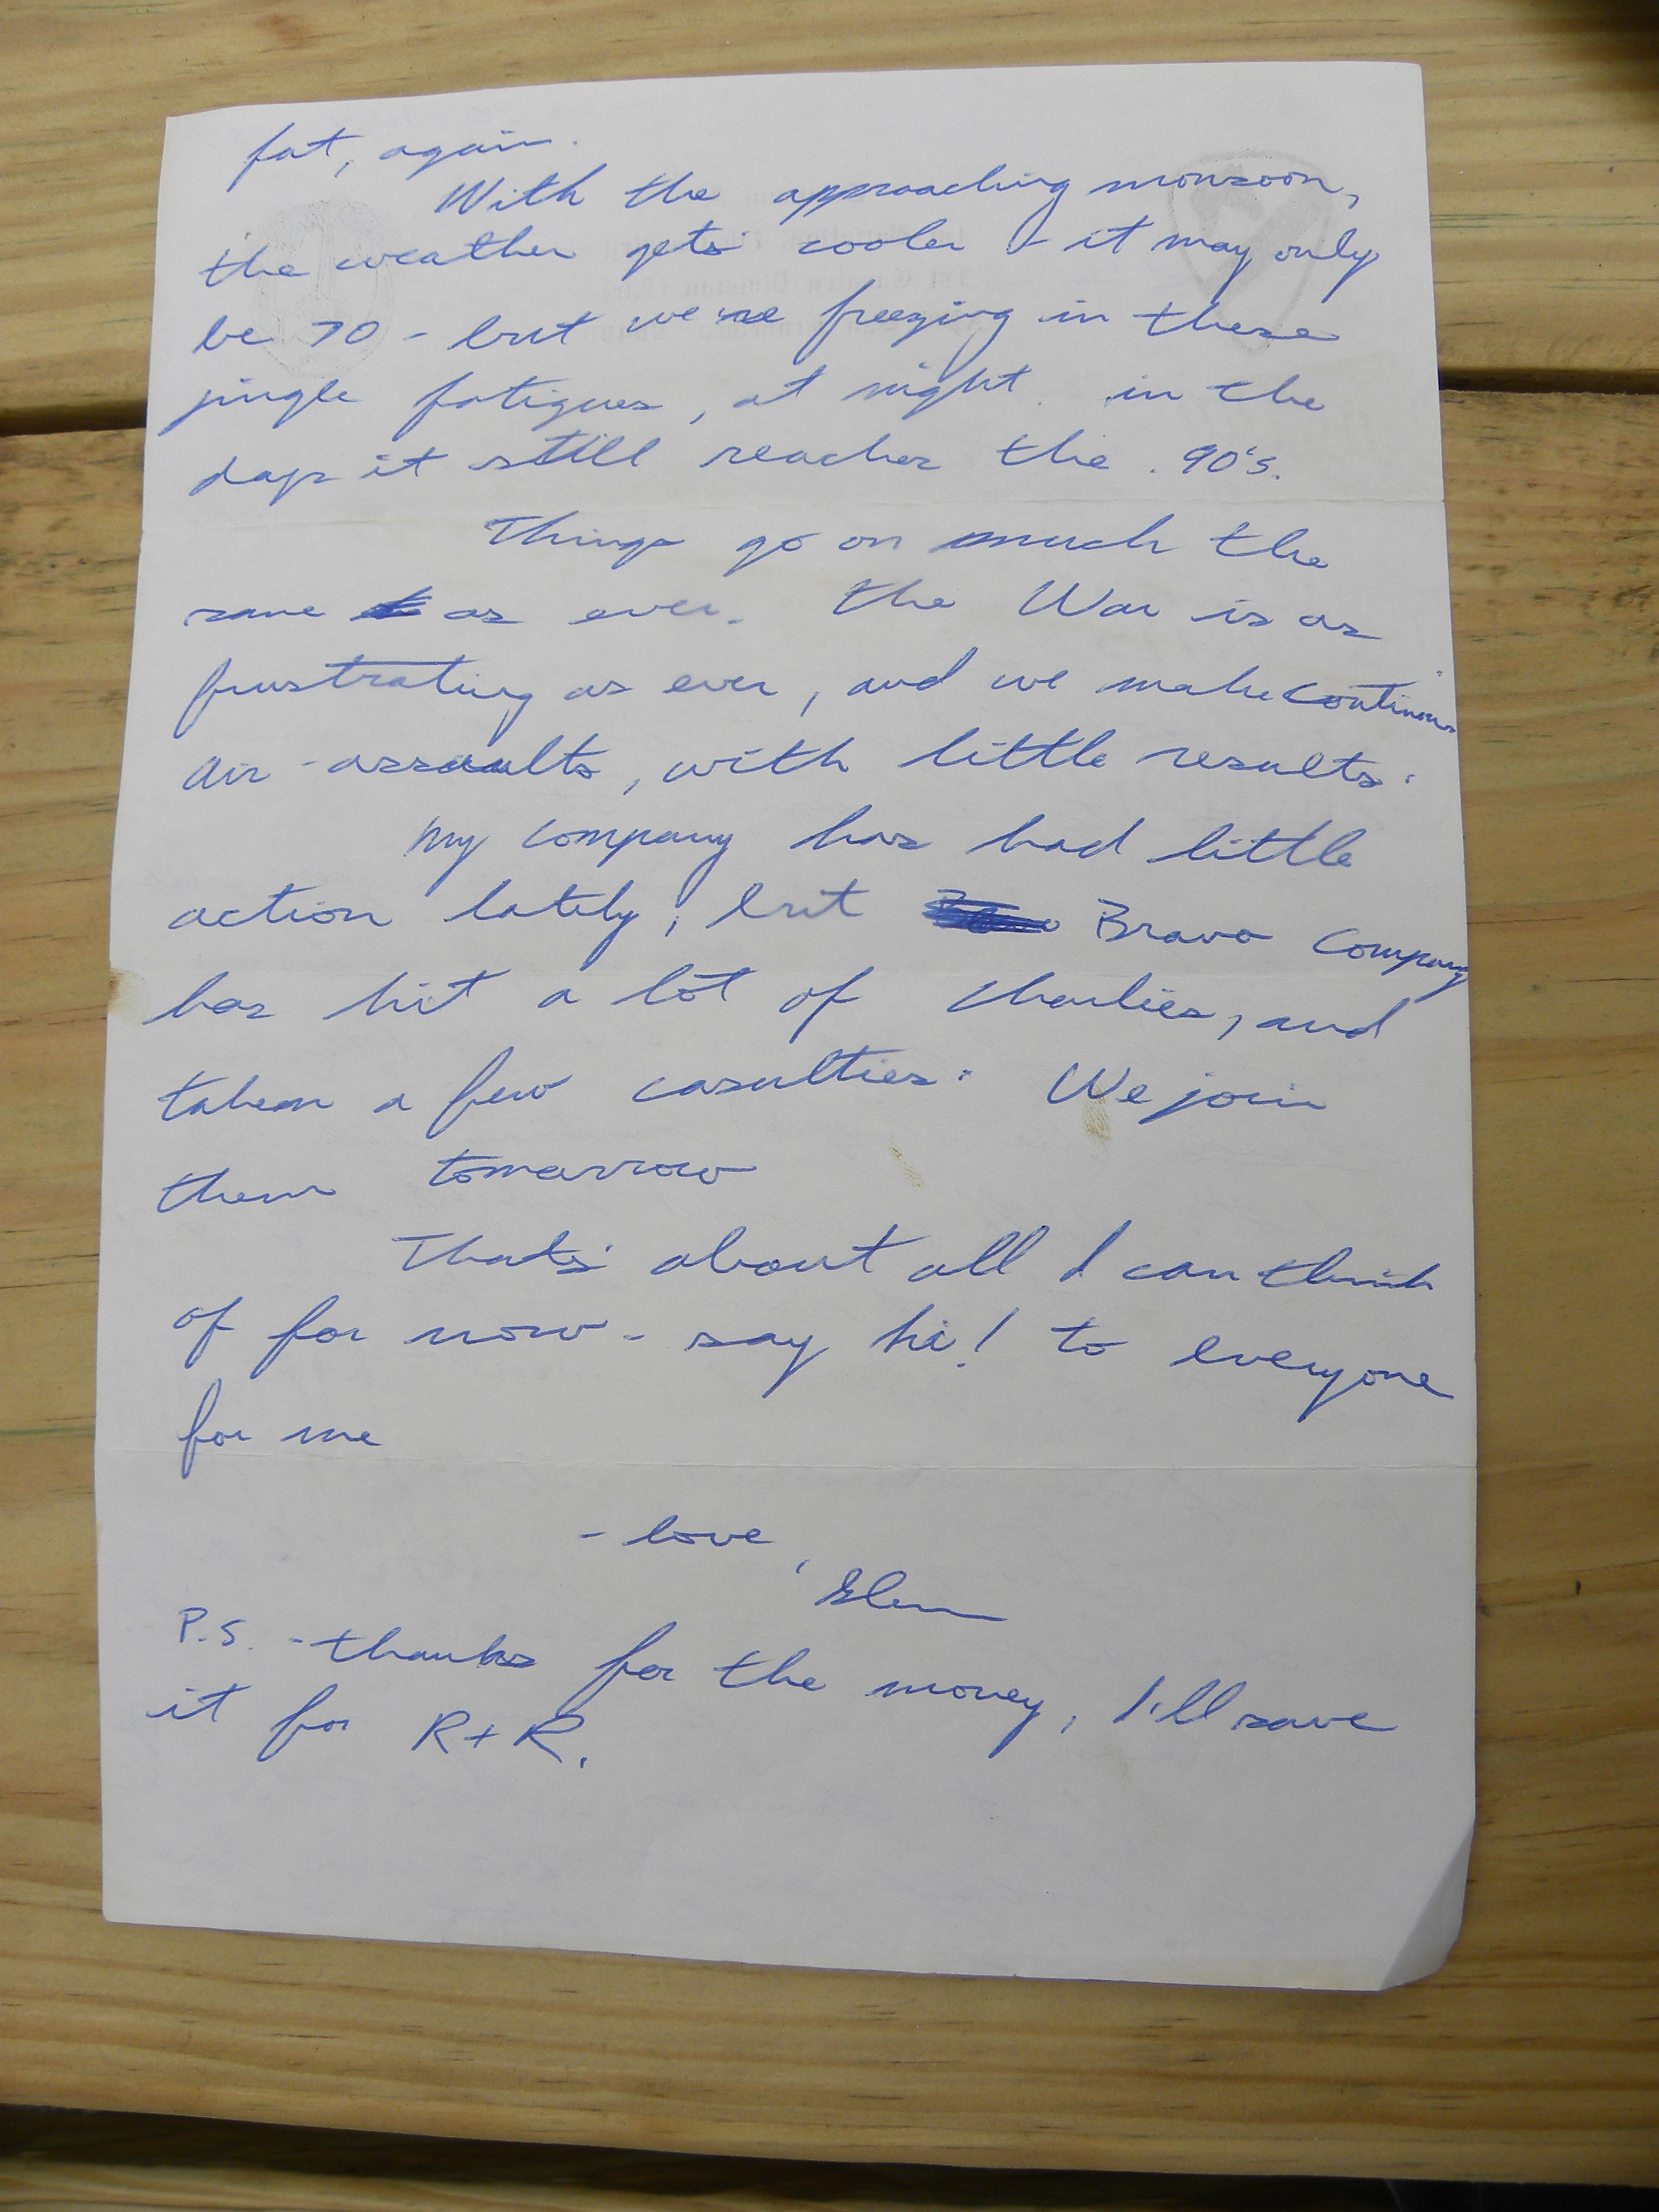 fat, again.
With the approaching monsoon,
the weather gets cooler - it may only
be 70 - but we're freezing in these
jingle fatigues, at night. in the
days it still reaches the 90's.
Things go on much the
same as ever. The War is as
frustrating as ever, and we make continuous
air-assaults, with little results.
My company has had little
action lately, but Bravo Company
has hit a lot of Charlies, and
taken a few casulties. We join
them tomorrow
That's about all I can think
of for now - say hi! to everyone
for me
- love,
Glenn
P.S. - thanks for the money, I'll save
it for R+R.